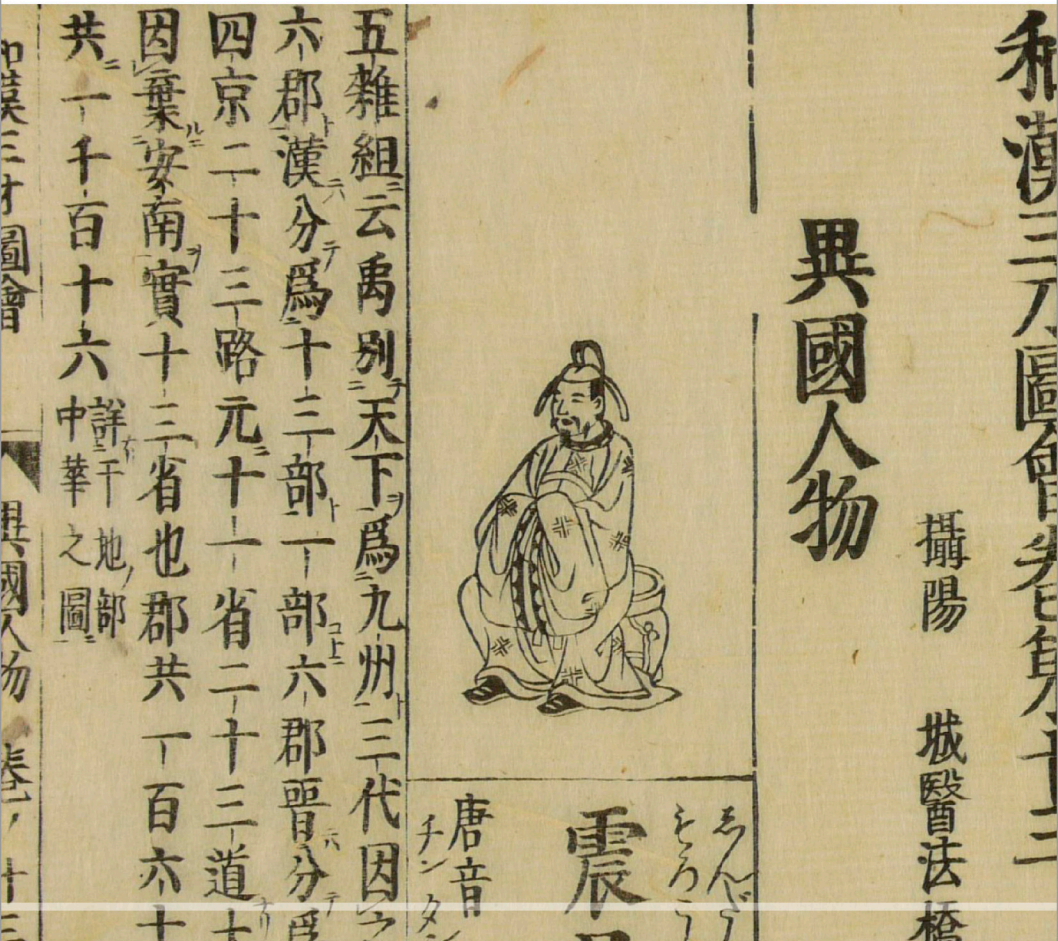 和漢三才圖會卷第十三
攝陽 城醫法橋
異國人物
もろこ
震
唐音
チンタン
五雜組云禹別天下爲九州三代因之
六郡漢分爲十三部一部六郡晋分爲
四京二十三路元十一省二十三道十
因棄安南實十三省也郡共一百六十
共一千百十六 詳于地部
中華之圖
和漢三才圖會 異國人物 卷